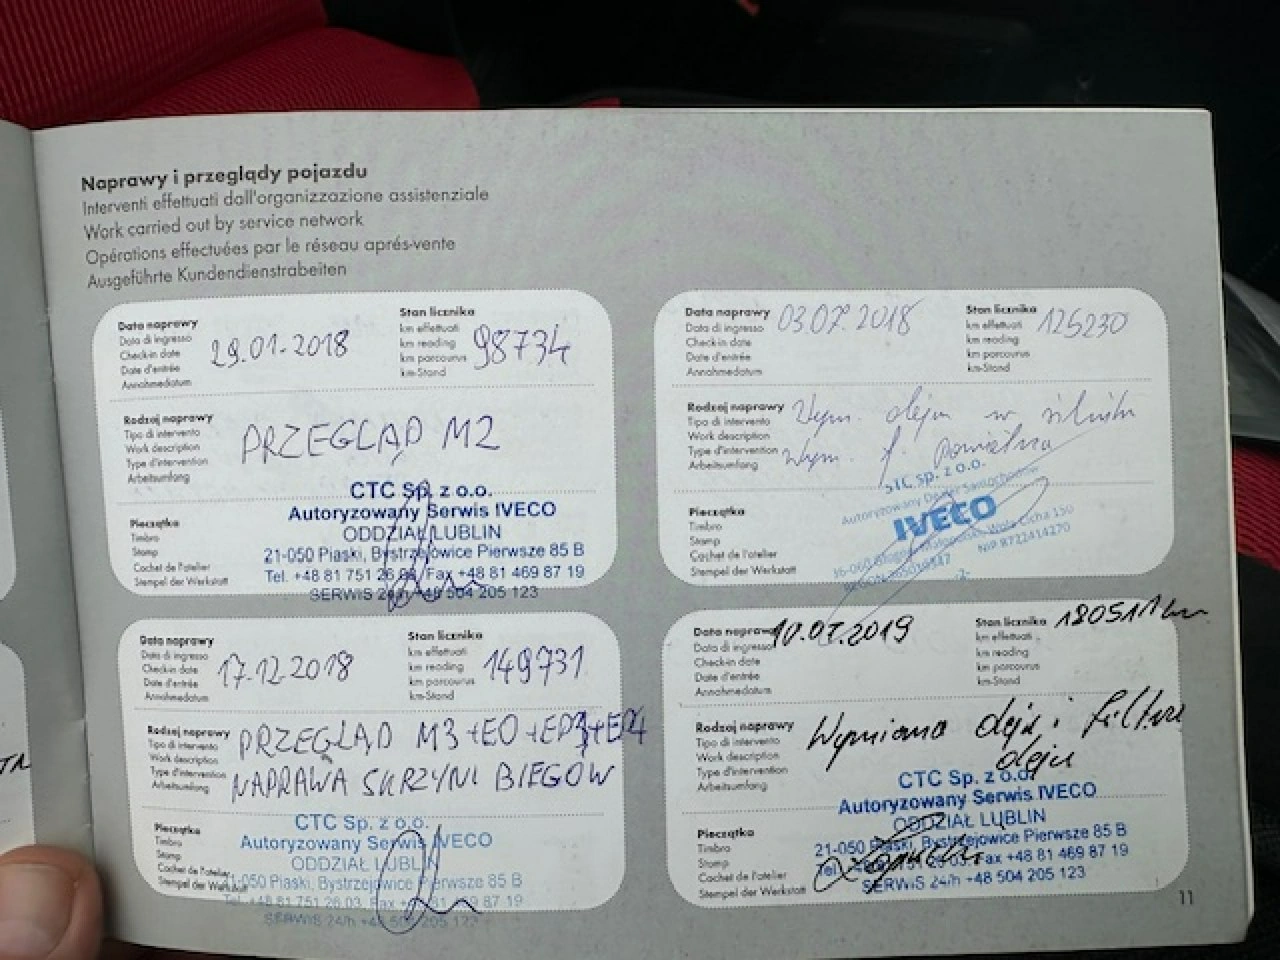 Naprawy i przeglądy pojazdu
Interventi effettuati dall'organizzazione assistenziale
Work carried out by service network
Opérations effectuées par le réseau aprés-vente
Ausgeführte Kundendienstrabeiten
Data naprawy
Data di ingresso
Check-in date
Date d'entrée
Annahmedatum
29.01.2018
Stan licznika
km effettuati
km reading
km parcourus
km-Stand
98734
Rodzaj naprawy
Tipo di intervento
Work description
Type d'intervention
Arbeitsumfang
PRZEGLĄD M2
Pieczątka
Timbro
Stamp
Cachet de l'atelier
Stempel der Werkstatt
CTC Sp. z o.o.
Autoryzowany Serwis IVECO
ODDZIAŁ LUBLIN
21-050 Piaski, Bystrzejowice Pierwsze 85 B
Tel. +48 81 751 26 03, Fax +48 81 469 87 19
SERWIS 24/h +48 504 205 123
Data naprawy
Data di ingresso
Check-in date
Date d'entrée
Annahmedatum
03.07.2018
Stan licznika
km effettuati
km reading
km parcourus
km-Stand
125230
Rodzaj naprawy
Tipo di intervento
Work description
Type d'intervention
Arbeitsumfang
Wym. oleju w silniku
Wym. f. powietrza
Pieczątka
Timbro
Stamp
Cachet de l'atelier
Stempel der Werkstatt
STC sp. z o.o.
Autoryzowany Dealer Samochodów
IVECO
Wola Cicha 150
NIP 8722414270
-2-
Data naprawy
Data di ingresso
Check-in date
Date d'entrée
Annahmedatum
17.12.2018
Stan licznika
km effettuati
km reading
km parcourus
km-Stand
149731
Rodzaj naprawy
Tipo di intervento
Work description
Type d'intervention
Arbeitsumfang
PRZEGLĄD M3+EO+EP3+EP4
NAPRAWA SKRZYNI BIEGÓW
Pieczątka
Timbro
Stamp
Cachet de l'atelier
Stempel der Werkstatt
CTC Sp. z o.o.
Autoryzowany Serwis IVECO
ODDZIAŁ LUBLIN
21-050 Piaski, Bystrzejowice Pierwsze 85 B
Tel. +48 81 751 26 03, Fax +48 81 469 87 19
SERWIS 24/h +48 504 205 123
Data naprawy
Data di ingresso
Check-in date
Date d'entrée
Annahmedatum
10.07.2019
Stan licznika
km effettuati
km reading
km parcourus
km-Stand
180511 km
Rodzaj naprawy
Tipo di intervento
Work description
Type d'intervention
Arbeitsumfang
Wymiana oleju i filtra
oleju
Pieczątka
Timbro
Stamp
Cachet de l'atelier
Stempel der Werkstatt
CTC Sp. z o.o.
Autoryzowany Serwis IVECO
ODDZIAŁ LUBLIN
21-050 Piaski, Bystrzejowice Pierwsze 85 B
Tel. 03, Fax +48 81 469 87 19
SERWIS 24/h +48 504 205 123
11